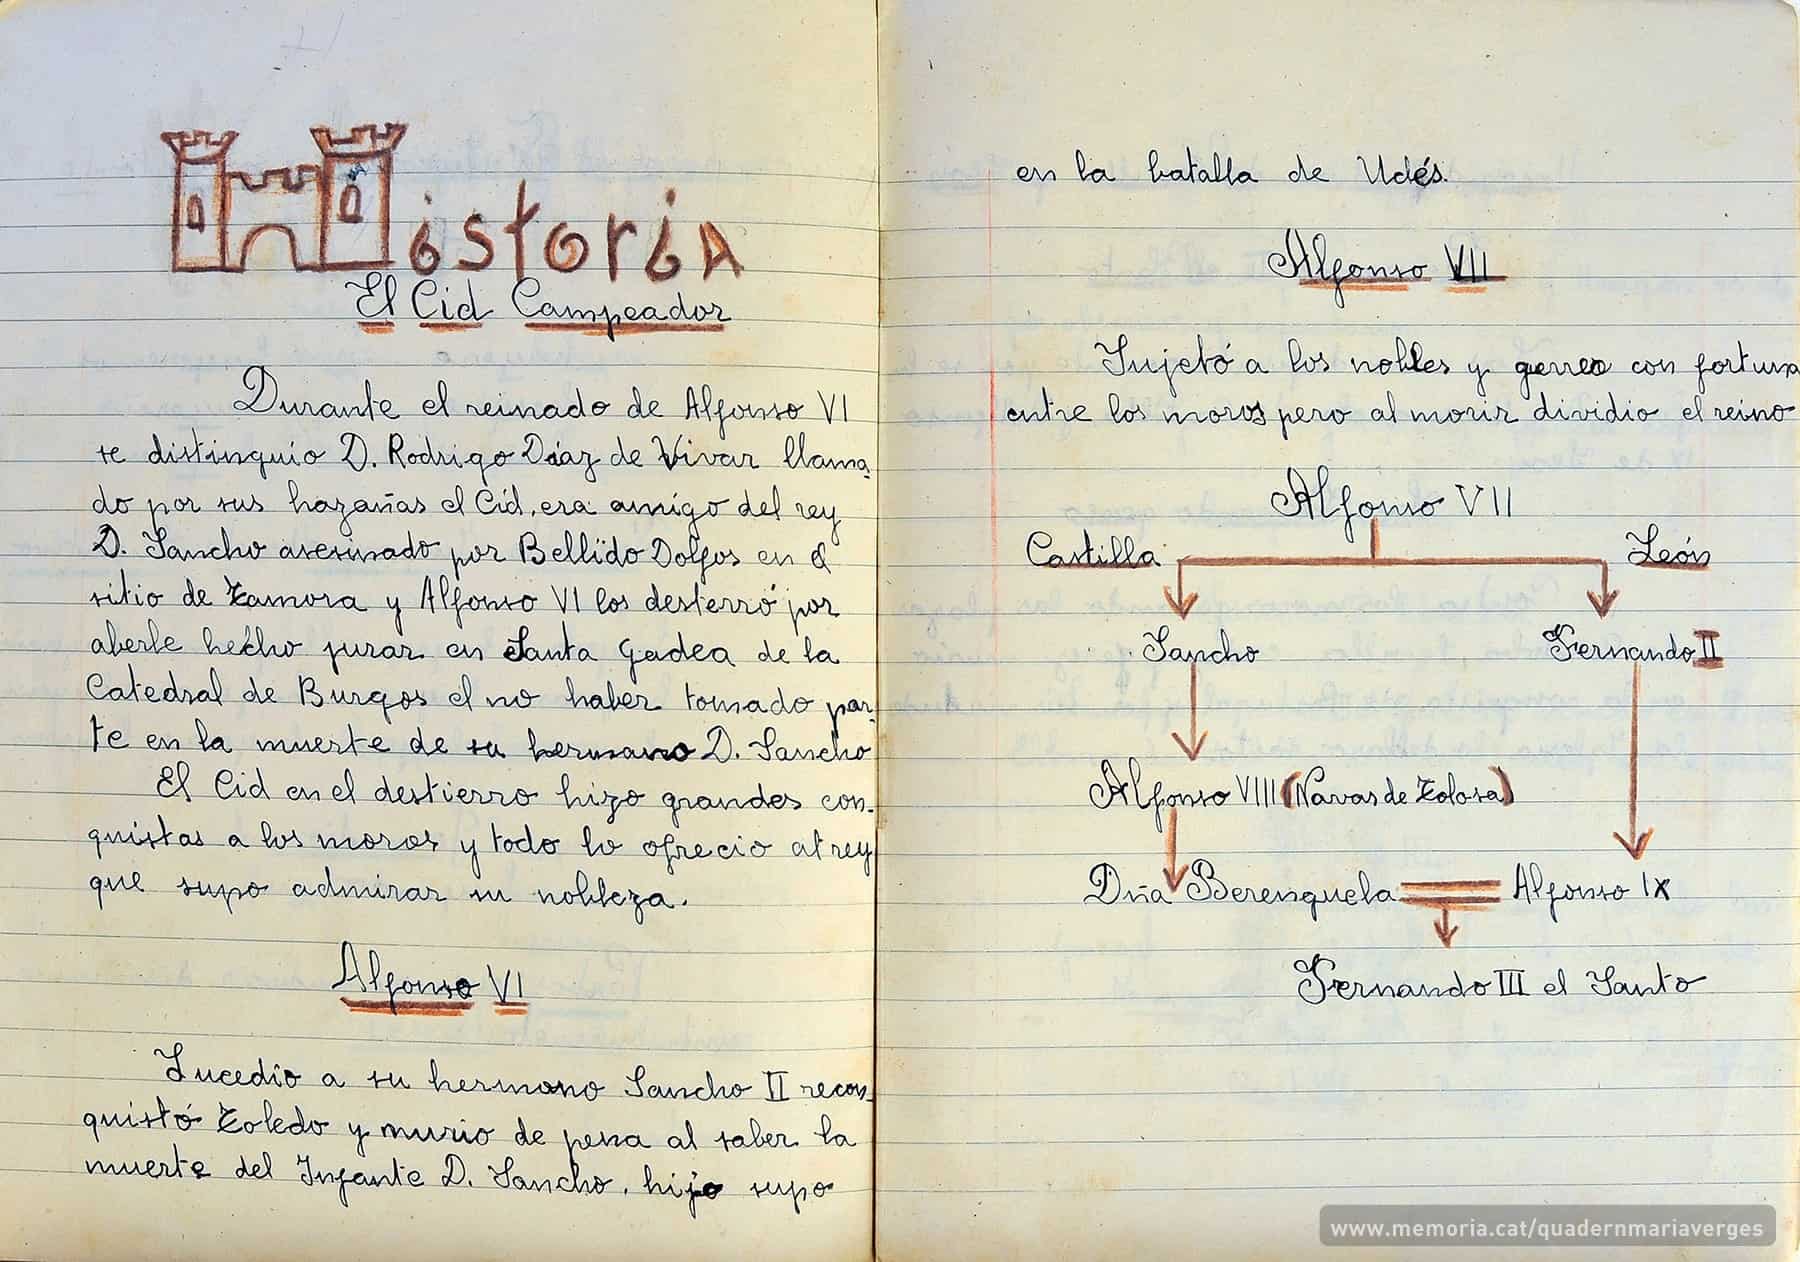 Historia
El Cid Campeador
Durante el reinado de Alfonso VI
se distinguio D. Rodrigo Díaz de Vivar llama-
do por sus hazañas el Cid, era amigo del rey
D. Sancho asesinado por Bellido Dolfos en el
sitio de Zamora y Alfonso VI los desterró por
aberle hecho jurar en Santa Gadea de la
Catedral de Burgos el no haber tomado par-
te en la muerte de su hermano D. Sancho
El Cid en el destierro hizo grandes con-
quistas a los moros y todo lo ofrecio al rey
que supo admirar su nobleza.
Alfonso VI
Sucedio a su hermano Sancho II recon-
quistó Toledo y murio de pena al saber la
muerte del Infante D. Sancho, hijo supo
en la batalla de Uclés.
Alfonso VII
Sujetó a los nobles y gerreo con fortuna
entre los moros pero al morir dividio el reino
Alfonso VII
Castilla León
Sancho Fernando II
Alfonso VIII (Navas de Tolosa)
Dña Berenguela Alfonso IX
Fernando III el Santo
www.memoria.cat/quadernmariaverges